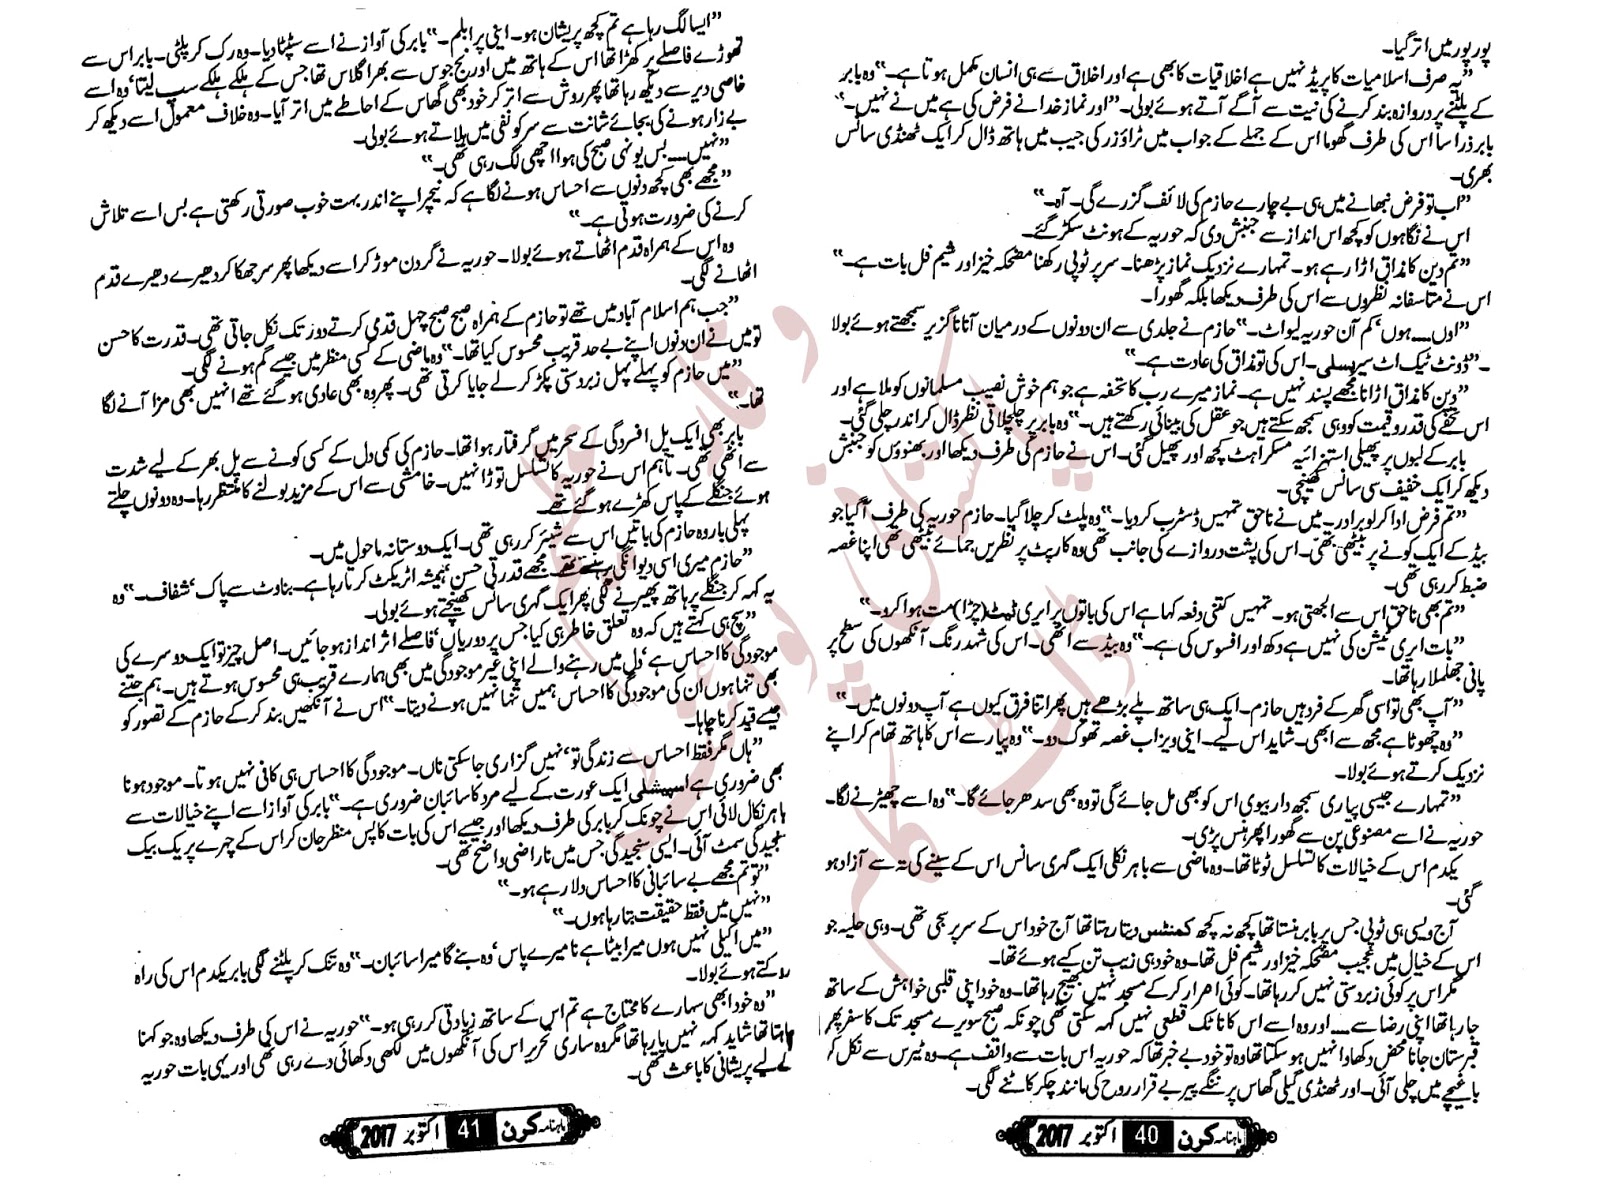 پور پور میں اتر گیا۔
”یہ صرف اسلامیات کا پریڈ نہیں ہے اخلاقیات کا بھی ہے اور اخلاق سے ہی انسان مکمل ہوتا ہے۔“ وہ بابر
کے پلٹنے پر دروازہ بند کرنے کی نیت سے آگے آتے ہوئے بولی۔ ”اور نماز خدا نے فرض کی ہے میں نے نہیں۔“
بابر ذرا سا اس کی طرف گھوما اس کے جملے کے جواب میں ٹراؤزر کی جیب میں ہاتھ ڈال کر ایک ٹھنڈی سانس
بھری۔
”اب تو فرض نبھانے میں ہی بے چارے حازم کی لائف گزرے گی۔ آہ۔“
اس نے نگاہوں کو کچھ اس انداز سے جنبش دی کہ حوریہ کے ہونٹ سکڑ گئے۔
”تم دین کا مذاق اڑا رہے ہو۔ تمہارے نزدیک نماز پڑھنا۔ سر پر ٹوپی رکھنا مضحکہ خیز اور شیم فل بات ہے۔“
اس نے متاسفانہ نظروں سے اس کی طرف دیکھا بلکہ گھورا۔
”اوں۔۔۔ ہوں‘ کم آن حوریہ لیو اٹ۔“ حازم نے جلدی سے ان دونوں کے درمیان آنا ناگزیر سمجھتے ہوئے بولا
۔ ”ڈونٹ ٹیک اٹ سیریسلی۔ اس کی تو مذاق کی عادت ہے۔“
”دین کا مذاق اڑانا مجھے پسند نہیں ہے۔ نماز میرے رب کا تحفہ ہے جو ہم خوش نصیب مسلمانوں کو ملا ہے اور
اس تحفے کی قدر و قیمت کو وہی سمجھ سکتے ہیں جو عقل کی بینائی رکھتے ہیں۔“ وہ بابر پر چلچلاتی نظر ڈال کر اندر چلی گئی۔
بابر کے لبوں پر پھیلی استہزائیہ مسکراہٹ کچھ اور پھیل گئی۔ اس نے حازم کی طرف دیکھا اور بھنوؤں کو جنبش
دیکھ کر ایک خفیف سی سانس کھینچی۔
”تم فرض ادا کر لو برادر۔ میں نے ناحق تمہیں ڈسٹرب کر دیا۔“ وہ پلٹ کر چلا گیا۔ حازم حوریہ کی طرف آ گیا جو
بیڈ کے ایک کونے پر بیٹھی تھی۔ اس کی پشت دروازے کی جانب تھی وہ کارپٹ پر نظریں جمائے بیٹھی تھی اپنا غصہ
ضبط کر رہی تھی۔
”تم بھی ناحق اس سے الجھتی ہو۔ تمہیں کتنی دفعہ کہا ہے اس کی باتوں پر ایری ٹیٹ (چڑا) مت ہوا کرو۔“
”بات ایری ٹیشن کی نہیں ہے دکھ اور افسوس کی ہے۔“ وہ بیڈ سے اٹھی۔ اس کی شہد رنگ آنکھوں کی سطح پر
پانی جھلملا رہا تھا۔
”آپ بھی تو اسی گھر کے فرد ہیں حازم۔ ایک ہی ساتھ پلے بڑھے ہیں پھر اتنا فرق کیوں ہے آپ دونوں میں۔“
”وہ چھوٹا ہے مجھ سے ابھی۔ شاید اس لیے۔ اینی ویز اب غصہ تھوک دو۔“ وہ پیار سے اس کا ہاتھ تھام کر اپنے
نزدیک کرتے ہوئے بولا۔
”تمہارے جیسی پیاری سمجھ دار بیوی اس کو بھی مل جائے گی تو وہ بھی سدھر جائے گا۔“ وہ اسے چھیڑنے لگا۔
حوریہ نے اسے مصنوعی پن سے گھورا پھر ہنس پڑی۔
یکدم اس کے خیالات کا تسلسل ٹوٹا تھا۔ وہ ماضی سے باہر نکلی ایک گہری سانس اس کے سینے کی تہ سے آزاد ہو
گئی۔
آج ویسی ہی ٹوپی جس پر بابر ہنستا تھا کچھ نہ کچھ کمنٹس دیتا رہتا تھا آج خود اس کے سر پر سجی تھی۔ وہی حلیہ جو
اس کے خیال میں عجیب مضحکہ خیز اور شیم فل تھا۔ وہ خود ہی زیب تن کیے ہوئے تھا۔
مگر اس پر کوئی زبردستی نہیں کر رہا تھا۔ کوئی اصرار کر کے مسجد نہیں بھیج رہا تھا۔ وہ خود اپنی قلبی خواہش کے ساتھ
جا رہا تھا اپنی رضا سے۔۔۔ اور وہ اسے اس کا ناٹک قطعی نہیں کہہ سکتی تھی چونکہ صبح سویرے مسجد تک کا سفر پھر
قبرستان جانا محض دکھاوا نہیں ہو سکتا تھا وہ تو خود بے خبر تھا کہ حوریہ اس بات سے واقف ہے۔ وہ ٹیرس سے نکل کر
باغیچے میں چلی آئی۔ اور ٹھنڈی گیلی گھاس پر ننگے پیر بے قرار روح کی مانند چکر کاٹنے لگی۔
ماہنامہ کرن 40 اکتوبر 2017
”ایسا لگ رہا ہے تم کچھ پریشان ہو۔ اینی پرابلم۔“ بابر کی آواز نے اسے سٹپٹا دیا۔ وہ رک کر پلٹی۔ بابر اس سے
تھوڑے فاصلے پر کھڑا تھا اس کے ہاتھ میں اورنج جوس سے بھرا گلاس تھا جس کے ہلکے ہلکے سپ لیتا‘ وہ اسے
خاصی دیر سے دیکھ رہا تھا پھر روش سے اتر کر خود بھی گھاس کے احاطے میں اتر آیا۔ وہ خلاف معمول اسے دیکھ کر
بے زار ہونے کی بجائے شانت سے سر کو نفی میں ہلاتے ہوئے بولی۔
”نہیں۔۔۔ بس یونہی صبح کی ہوا اچھی لگ رہی تھی۔“
”مجھے بھی کچھ دنوں سے احساس ہونے لگا ہے کہ نیچر اپنے اندر بہت خوب صورتی رکھتی ہے بس اسے تلاش
کرنے کی ضرورت ہوتی ہے۔“
وہ اس کے ہمراہ قدم اٹھاتے ہوئے بولا۔ حوریہ نے گردن موڑ کر اسے دیکھا پھر سر جھکا کر دھیرے دھیرے قدم
اٹھانے لگی۔
”جب ہم اسلام آباد میں تھے تو حازم کے ہمراہ صبح صبح چہل قدمی کرتے دور تک نکل جاتی تھی۔ قدرت کا حسن
تو میں نے ان دنوں اپنے بے حد قریب محسوس کیا تھا۔“ وہ ماضی کے کسی منظر میں جیسے گم ہونے لگی۔
”میں حازم کو پہلے پہل زبردستی پکڑ کر لے جایا کرتی تھی۔ پھر وہ بھی عادی ہو گئے تھے انہیں بھی مزا آنے لگا
تھا۔“
بابر بھی ایک پل افسردگی کے سحر میں گرفتار ہوا تھا۔ حازم کی کمی دل کے کسی کونے سے پل بھر کے لیے شدت
سے اٹھی تھی۔ تاہم اس نے حوریہ کا تسلسل توڑا نہیں۔ خامشی سے اس کے مزید بولنے کا منتظر رہا۔ وہ دونوں چلتے
ہوئے جنگلے کے پاس کھڑے ہو گئے تھے۔
پہلی بار وہ حازم کی باتیں اس سے شیئر کر رہی تھی۔ ایک دوستانہ ماحول میں۔
”حازم میری اسی دیوانگی پر ہنستے تھے مجھے قدرتی حسن ہمیشہ اٹریکٹ کرتا رہا ہے۔ بناوٹ سے پاک‘ شفاف۔“ وہ
یہ کہہ کر جنگلے پر ہاتھ پھیرنے لگی پھر ایک گہری سانس کھینچتے ہوئے بولی۔
”سچ ہی کہتے ہیں کہ وہ تعلق خاطر ہی کیا جس پر دوریاں‘ فاصلے اثر انداز ہو جائیں۔ اصل چیز تو ایک دوسرے کی
موجودگی کا احساس ہے‘ دل میں رہنے والے اپنی غیر موجودگی میں بھی ہمارے قریب ہی محسوس ہوتے ہیں۔ ہم جتنے
بھی تنہا ہوں ان کی موجودگی کا احساس ہمیں تنہا نہیں ہونے دیتا۔“ اس نے آنکھیں بند کر کے حازم کے تصور کو
جیسے قید کرنا چاہا۔
”ہاں مگر فقط احساس سے زندگی تو‘ نہیں گزاری جا سکتی ناں۔ موجودگی کا احساس ہی کافی نہیں ہوتا۔ موجود ہونا
بھی ضروری ہے اسپیشلی ایک عورت کے لیے مرد کا سائبان ضروری ہے۔“ بابر کی آواز اسے اپنے خیالات سے
باہر نکال لائی اس نے چونک کر بابر کی طرف دیکھا اور جیسے اس کی بات کا پس منظر جان کر اس کے چہرے پر یک بیک
سنجیدگی سمٹ آئی۔ ایسی سنجیدگی جس میں ناراضی واضح تھی۔
”تو تم مجھے بے سائبانی کا احساس دلا رہے ہو۔“
”نہیں میں فقط حقیقت بتا رہا ہوں۔“
”میں اکیلی نہیں ہوں میرا بیٹا ہے نا میرے پاس‘ وہ بنے گا میرا سائبان۔“ وہ تنک کر پلٹنے لگی بابر یکدم اس کی راہ
روکتے ہوئے بولا۔
”وہ خود ابھی سہارے کا محتاج ہے تم اس کے ساتھ زیادتی کر رہی ہو۔“ حوریہ نے اس کی طرف دیکھا وہ جو کہنا
چاہتا تھا شاید کہہ نہیں پا رہا تھا مگر وہ ساری تحریر اس کی آنکھوں میں لکھی دکھائی دے رہی تھی اور یہی بات حوریہ
کے لیے پریشانی کا باعث تھی۔
ماہنامہ کرن 41 اکتوبر 2017
پاکستانی پوائنٹ
ڈاٹ کام